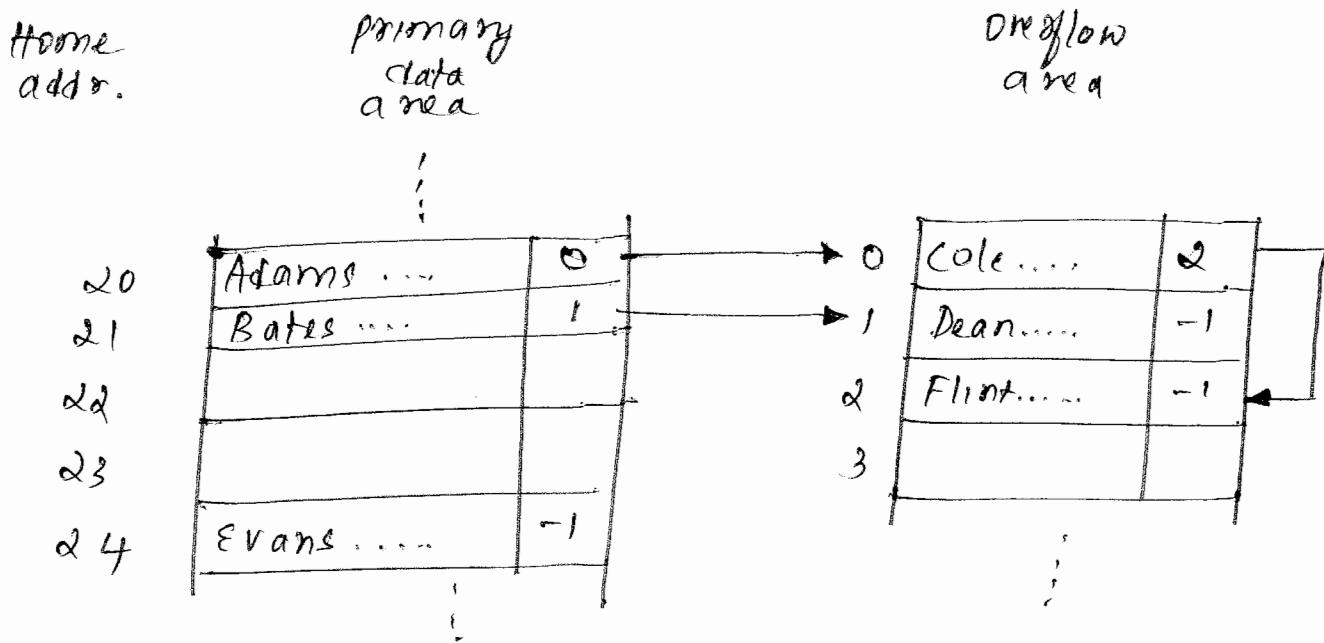 Home addr.
primary data area
Overflow area
20 Adams .... 0
21 Bates .... 1
22
23
24 Evans ..... -1
0 Cole .... 2
1 Dean ..... -1
2 Flint ..... -1
3